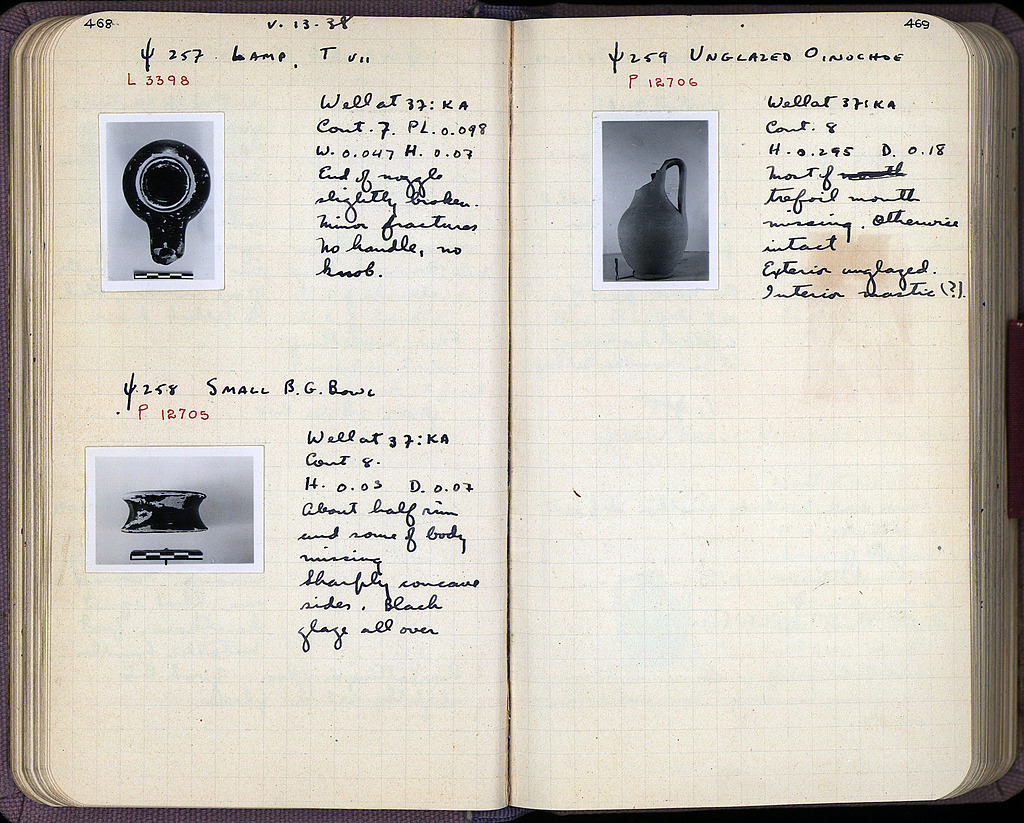 468
V. 13-38
Ψ 257 LAMP, T VII
L 3398
Well at 37:KA
Cont. 7. PL. 0.098
W. 0.047 H. 0.03
End of nozzle
slightly broken.
Minor fractures
No handle, no
knob.
Ψ 258 SMALL B.G. BOWL
P 12705
Well at 37:KA
Cont 8.
H. 0.03 D. 0.07
About half rim
and some of body
missing
Sharply concave
sides. Black
glaze all over
469
Ψ 259 UNGLAZED OINOCHOE
P 12706
Well at 37:KA
Cont. 8
H. 0.295 D. 0.18
Most of mouth
trefoil mouth
missing. Otherwise
intact
Exterior unglazed.
Interior mastic (?).